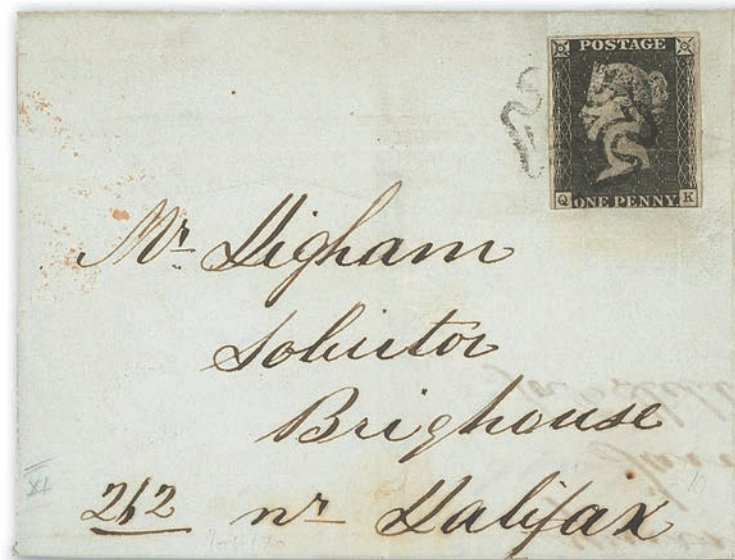 POSTAGE
Q ONE PENNY K
Mr Higham
Solicitor
Brighouse
262 nr Halifax